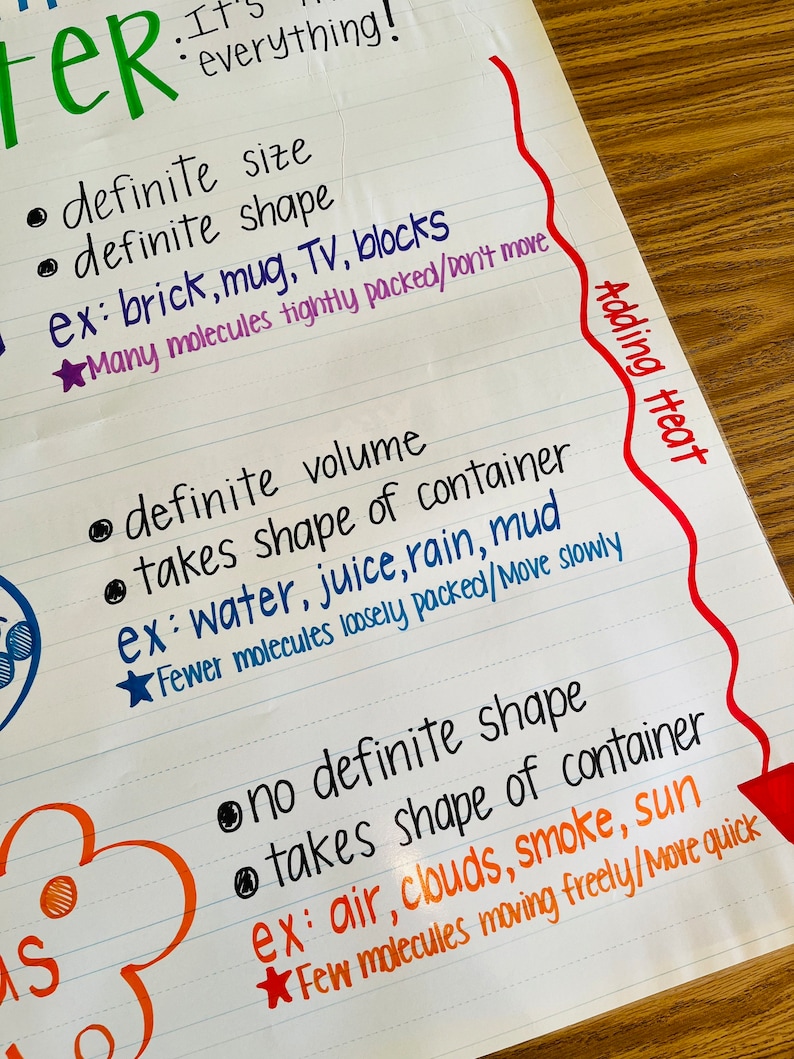 TER: It's
everything!
• definite size
• definite shape
ex: brick, mug, TV, blocks
★Many molecules tightly packed/Don't move
Adding Heat
• definite volume
• takes shape of container
ex: water, juice, rain, mud
★Fewer molecules loosely packed/Move slowly
• no definite shape
• takes shape of container
ex: air, clouds, smoke, sun
★Few molecules moving freely/Move quick
as